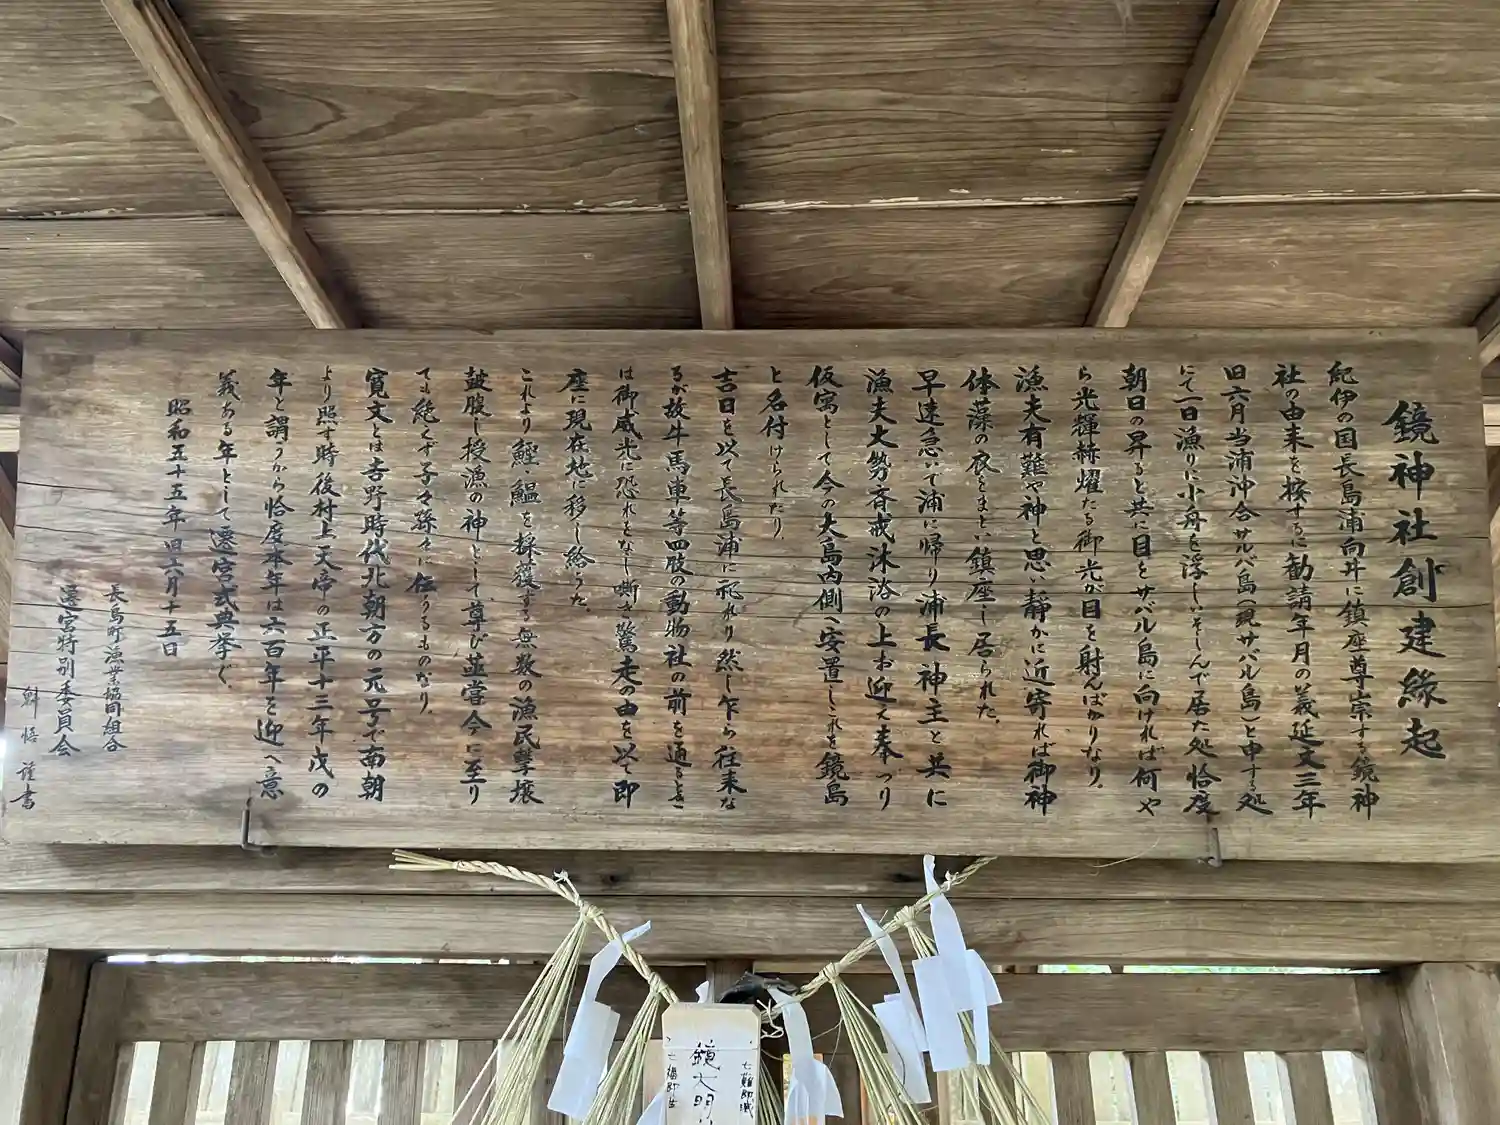 鏡神社創建縁起
紀伊の国長島浦向井に鎮座尊崇する鏡神
社の由来を按ずるに勧請年月の義延文三年
旧六月当浦沖合サルバ島(現サバル島)と申する処
にて一日漁りに小舟を浮しいそしんで居た処恰度
朝日の昇ると共に目をサバル島に向ければ何や
ら光輝赫燿たる御光が目を射んばかりなり。
漁夫有難や神と思い静かに近寄れば御神
体藻の衣をまとい鎮座し居られた。
早速急いで浦に帰り浦長神主と共に
漁夫大勢斉戒沐浴の上お迎え奉づり
仮寓として今の大島内側へ安置しこれを鏡島
と名付けられたり。
吉日を以て長島浦に祀れり然し乍ら往来な
るが故牛馬車等四肢の動物社の前を通るとき
は御威光に恐れをなし嘶き驚走の由を以て即
座に現在地に移し給うた。
これより鰹鰮を採獲する無数の漁民撃壌
鼓腹し授漁の神として尊び並嘗今に至り
ても絶えず子々孫々に伝うるものなり。
寛文とは吉野時代北朝方の元号で南朝
より照す時後村上天帝の正平十三年戊の
年と謂うから恰度本年は六百年を迎へ意
義ある年として遷宮式典挙ぐ。
昭和五十五年旧六月十五日
長島町漁業協同組合
遷宮特別委員会
悟謹書
鏡大明
七難即滅
七福即生